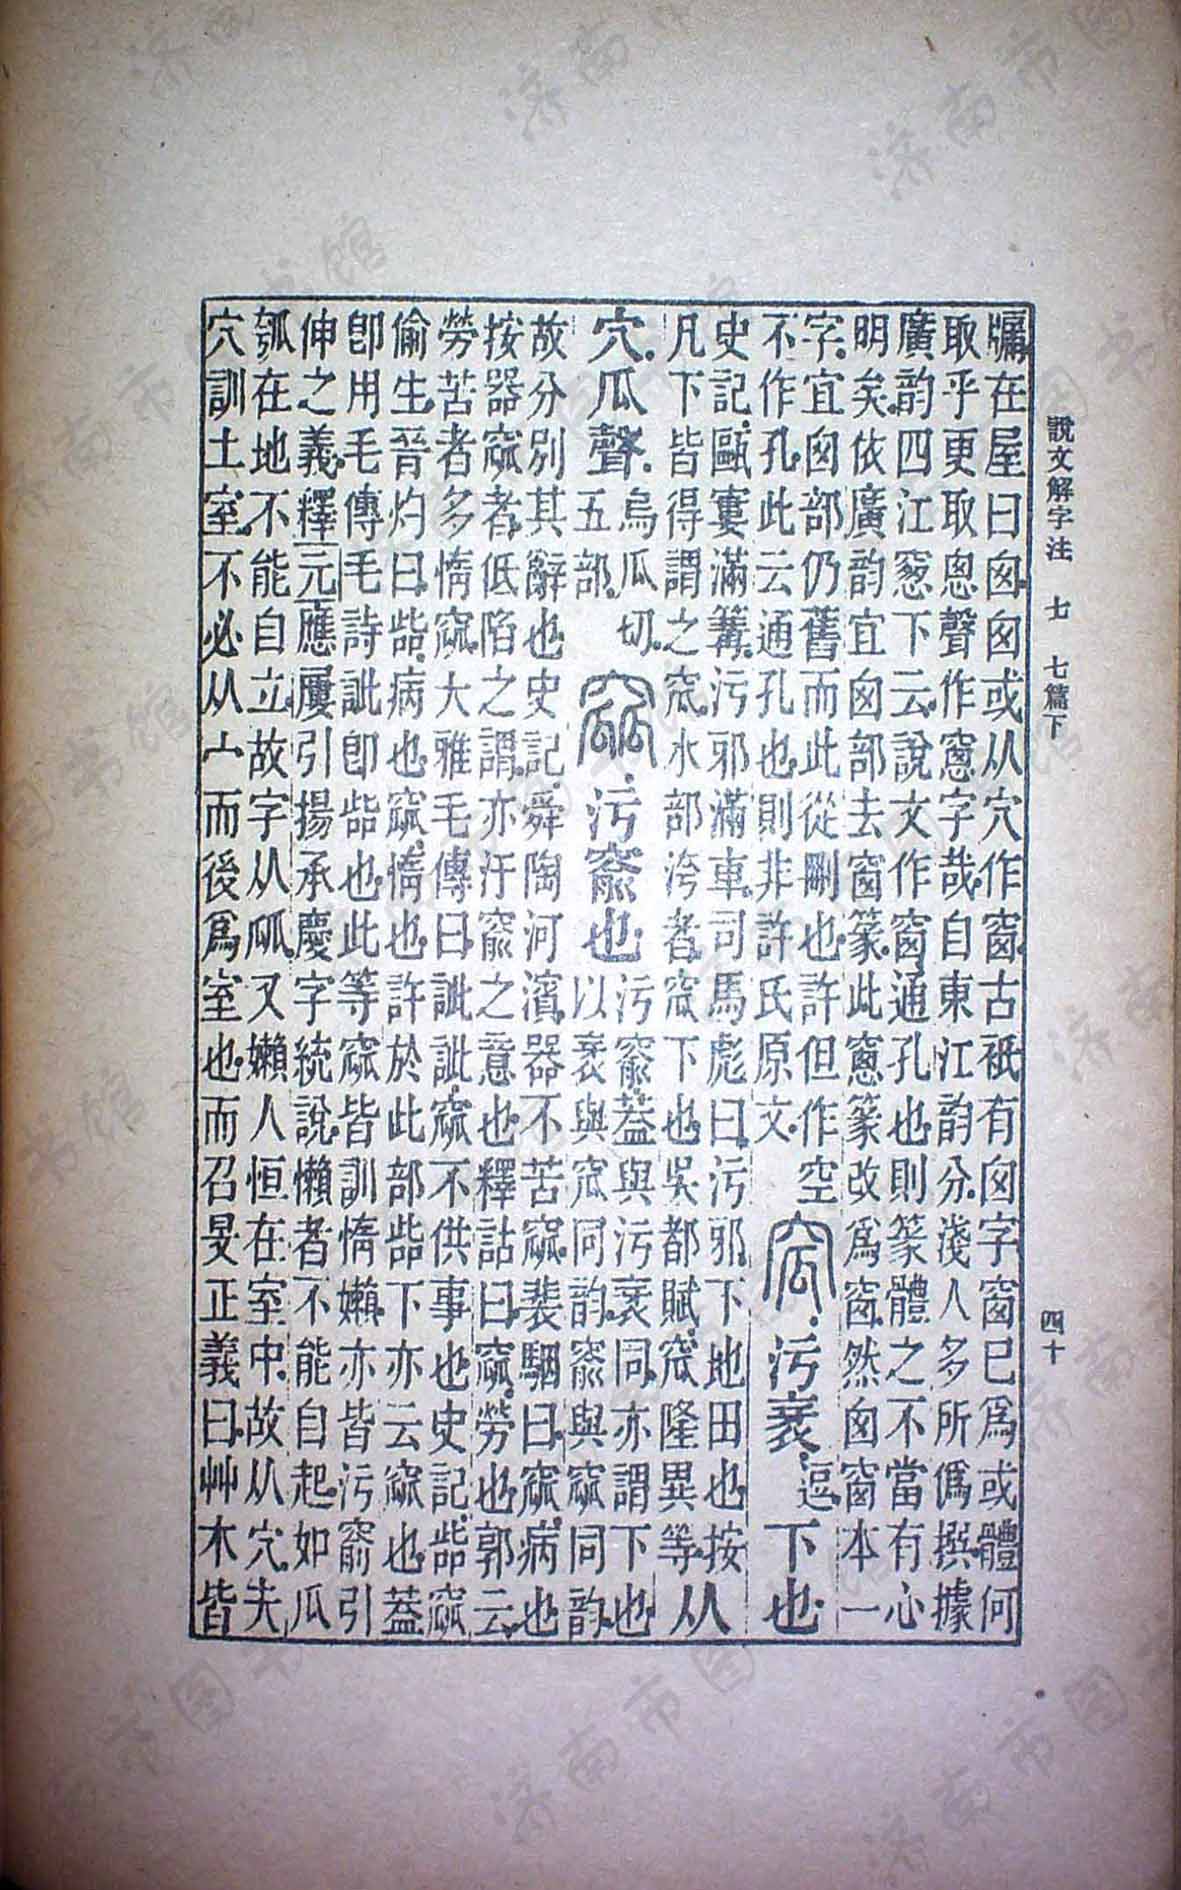 說文解字注 七 七篇下 四十
牖在屋曰囪囪或从穴作窗古祇有囪字窗已爲或體何
取乎更取悤聲作窻字哉自東江韵分淺人多所僞撰據
廣韵四江窻下云說文作窗通孔也則篆體之不當有心
明矣依廣韵宜囪部去窗篆此窻篆改爲窗然囪窗本一
字宜囪部仍舊而此從刪也許但作空
不作孔此云通孔也則非許氏原文
窊污衺逗下也
史記甌窶滿篝污邪滿車司馬彪曰污邪下地田也按
凡下皆得謂之窊水部洿者窊下也吳都賦窊隆異等
从
穴瓜聲
烏瓜切
五部
窳污窬也
污窬蓋與污衺同亦謂下也
以衺與窊同韵窬與窳同韵
故分別其辭也史記舜陶河濱器不苦窳裴駰曰窳病也
按器窳者低陷之謂亦汙窬之意也釋詁曰窳勞也郭云
勞苦者多惰窳大雅毛傳曰訿訿窳不供事也史記啙窳
偷生晉灼曰啙病也窳惰也許於此部啙下亦云窳也蓋
卽用毛傳毛詩訿卽啙也此等窳皆訓惰嬾亦皆污窬引
伸之義釋元應屢引揚承慶字統說懶者不能自起如瓜
瓠在地不能自立故字从㼌又嬾人恒在室中故从穴夫
穴訓土室不必从宀而後爲室也而召旻正義曰艸木皆